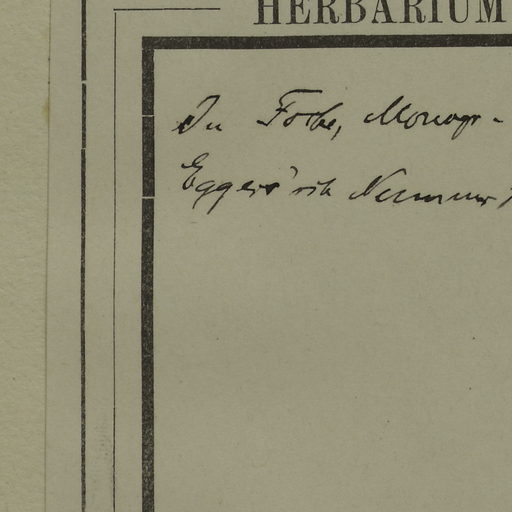 HERBARIUM
In Focke, Monogr-
Eggers'sch Nummer